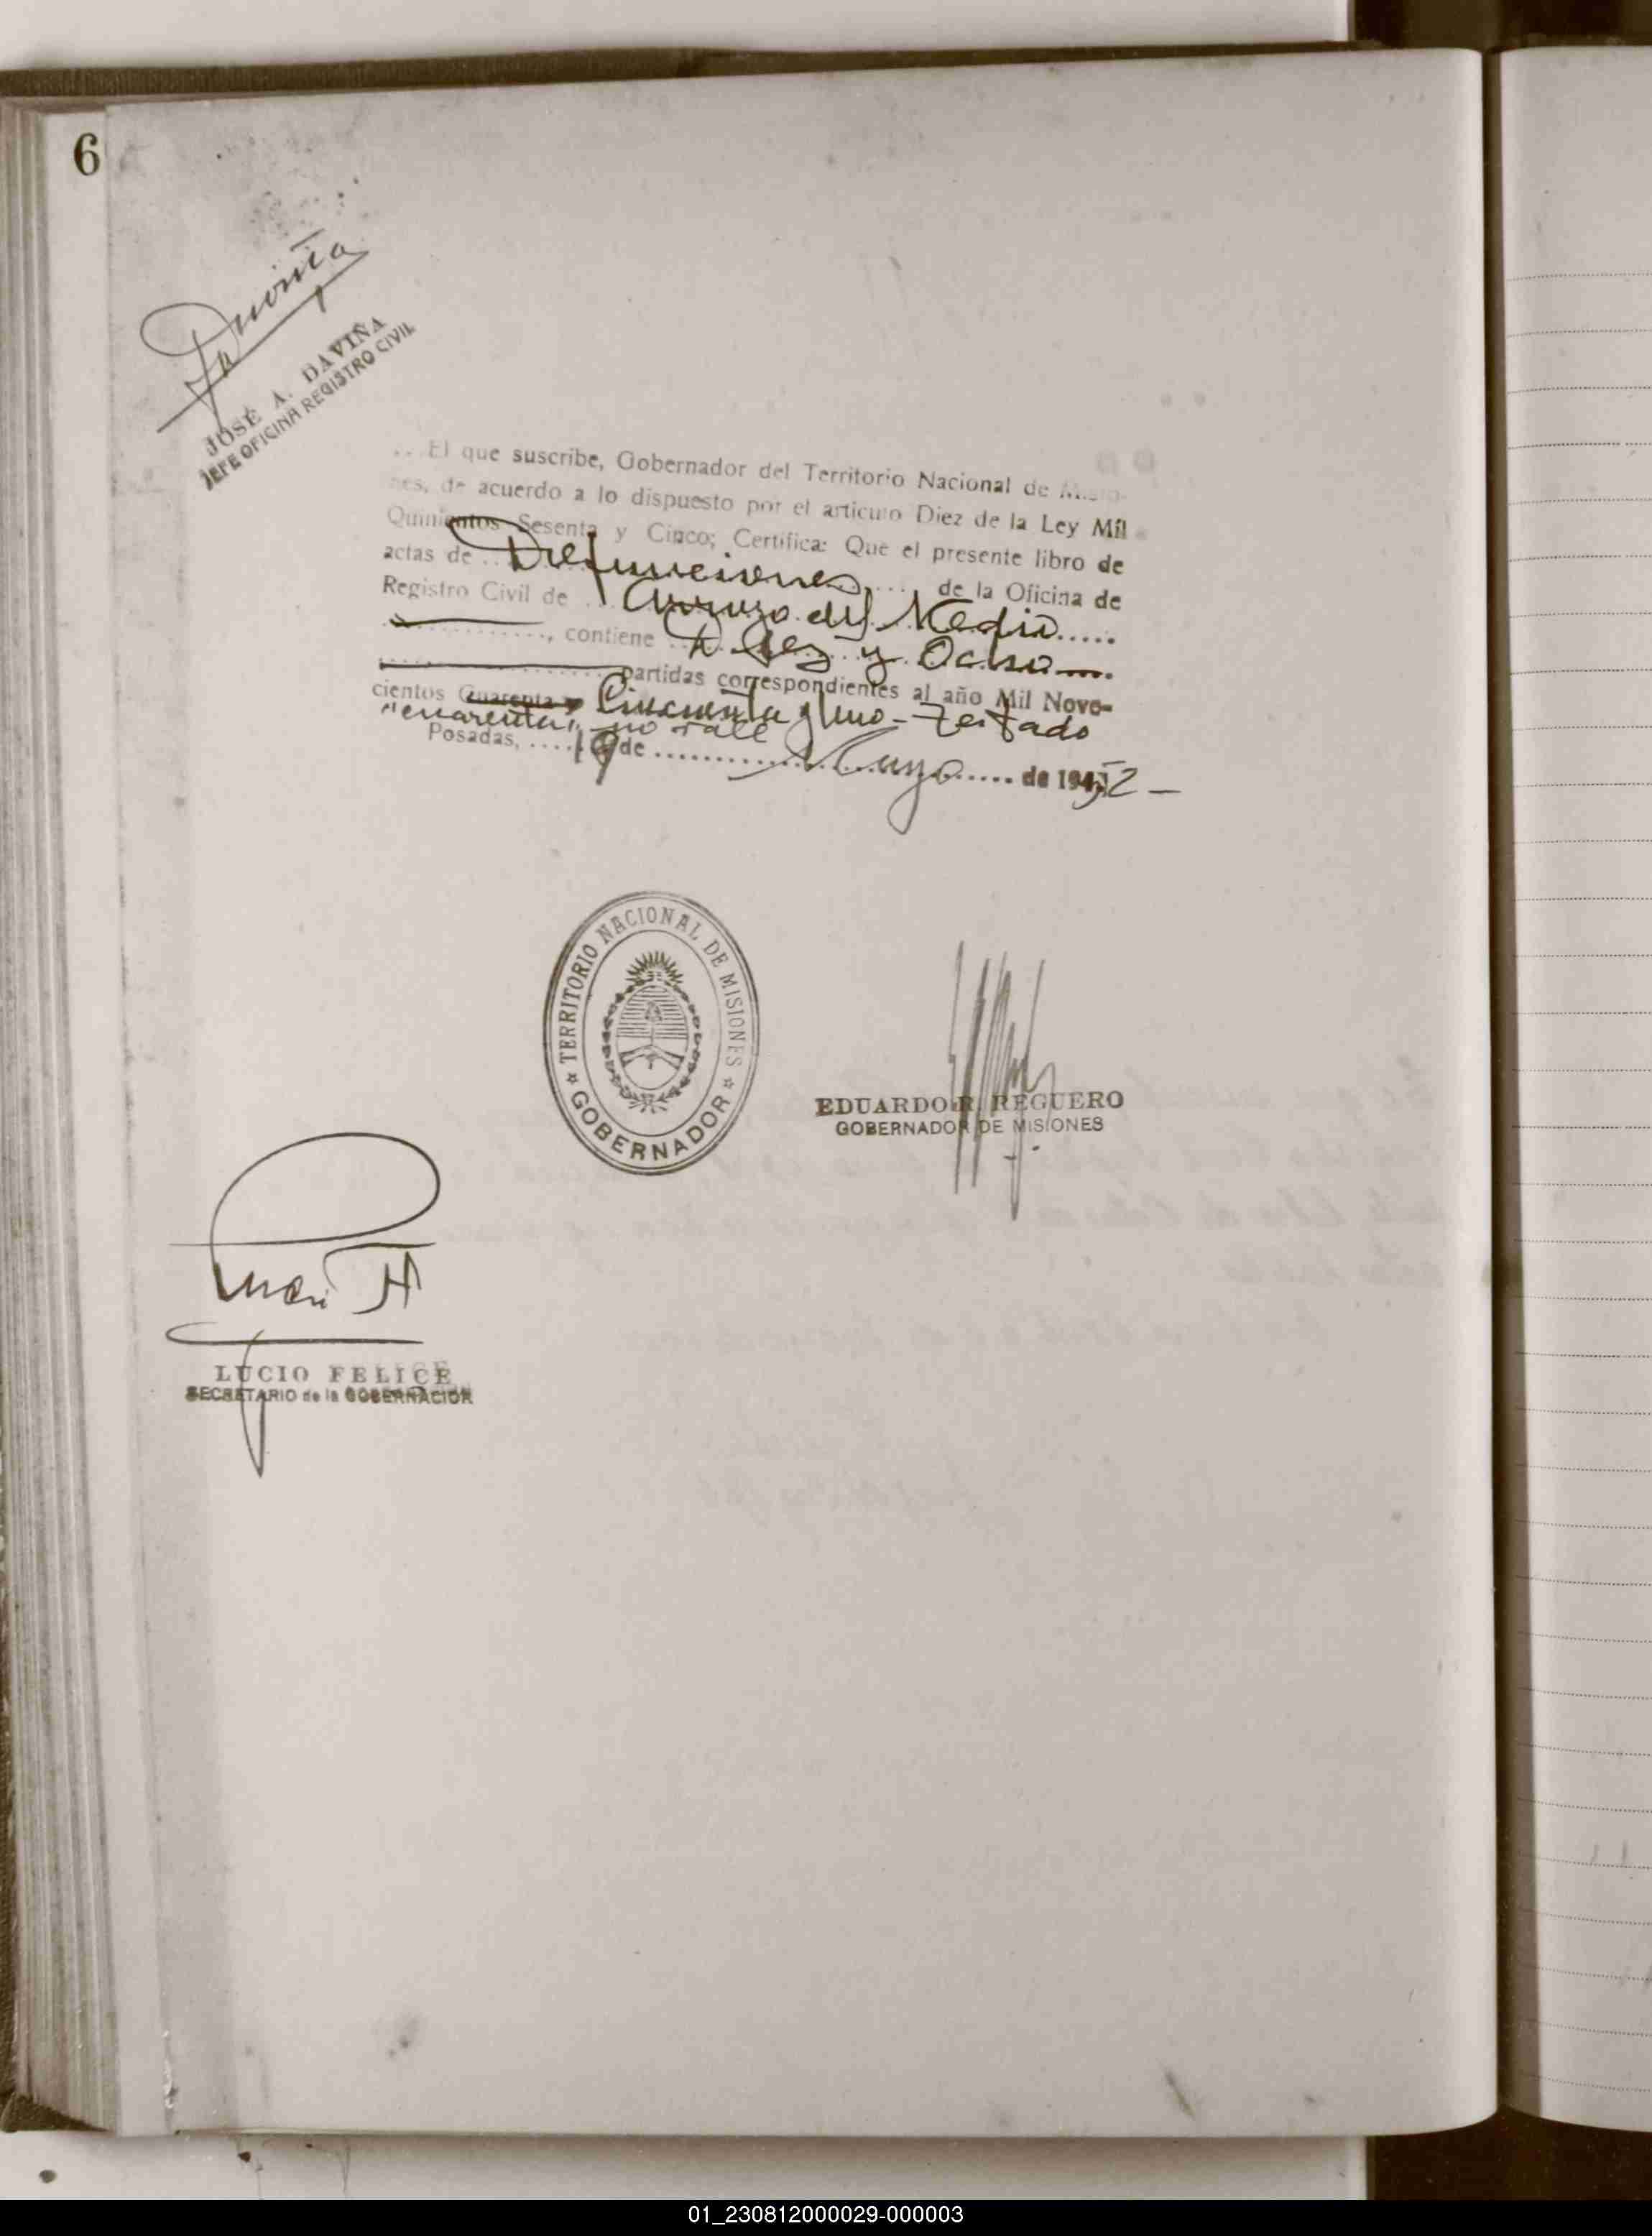 6
JOSÉ A. DAVIÑA
JEFE OFICINA REGISTRO CIVIL
El que suscribe, Gobernador del Territorio Nacional de Misio-
nes, de acuerdo a lo dispuesto por el artículo Diez de la Ley Mil
Quinientos Sesenta y Cinco; Certifica: Que el presente libro de
actas de .. Defunciones .... de la Oficina de
Registro Civil de ... Arroyo del Medio .....
............., contiene .. Diez y Ocho ....
................ partidas correspondientes al año Mil Nove-
cientos Cuarenta y Cincuenta y Uno - Testado
"cuarenta", no vale
Posadas, .... 19 de ................ Mayo ..... de 1952 -
TERRITORIO NACIONAL DE MISIONES
GOBERNADOR
EDUARDO R. REGUERO
GOBERNADOR DE MISIONES
LUCIO FELICE
SECRETARIO de la GOBERNACION
01_230812000029-000003